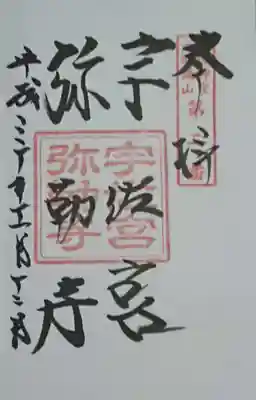 奉拝
宇佐宮
弥勒寺
平成三十年十一月十二日
宇佐宮
弥勒寺